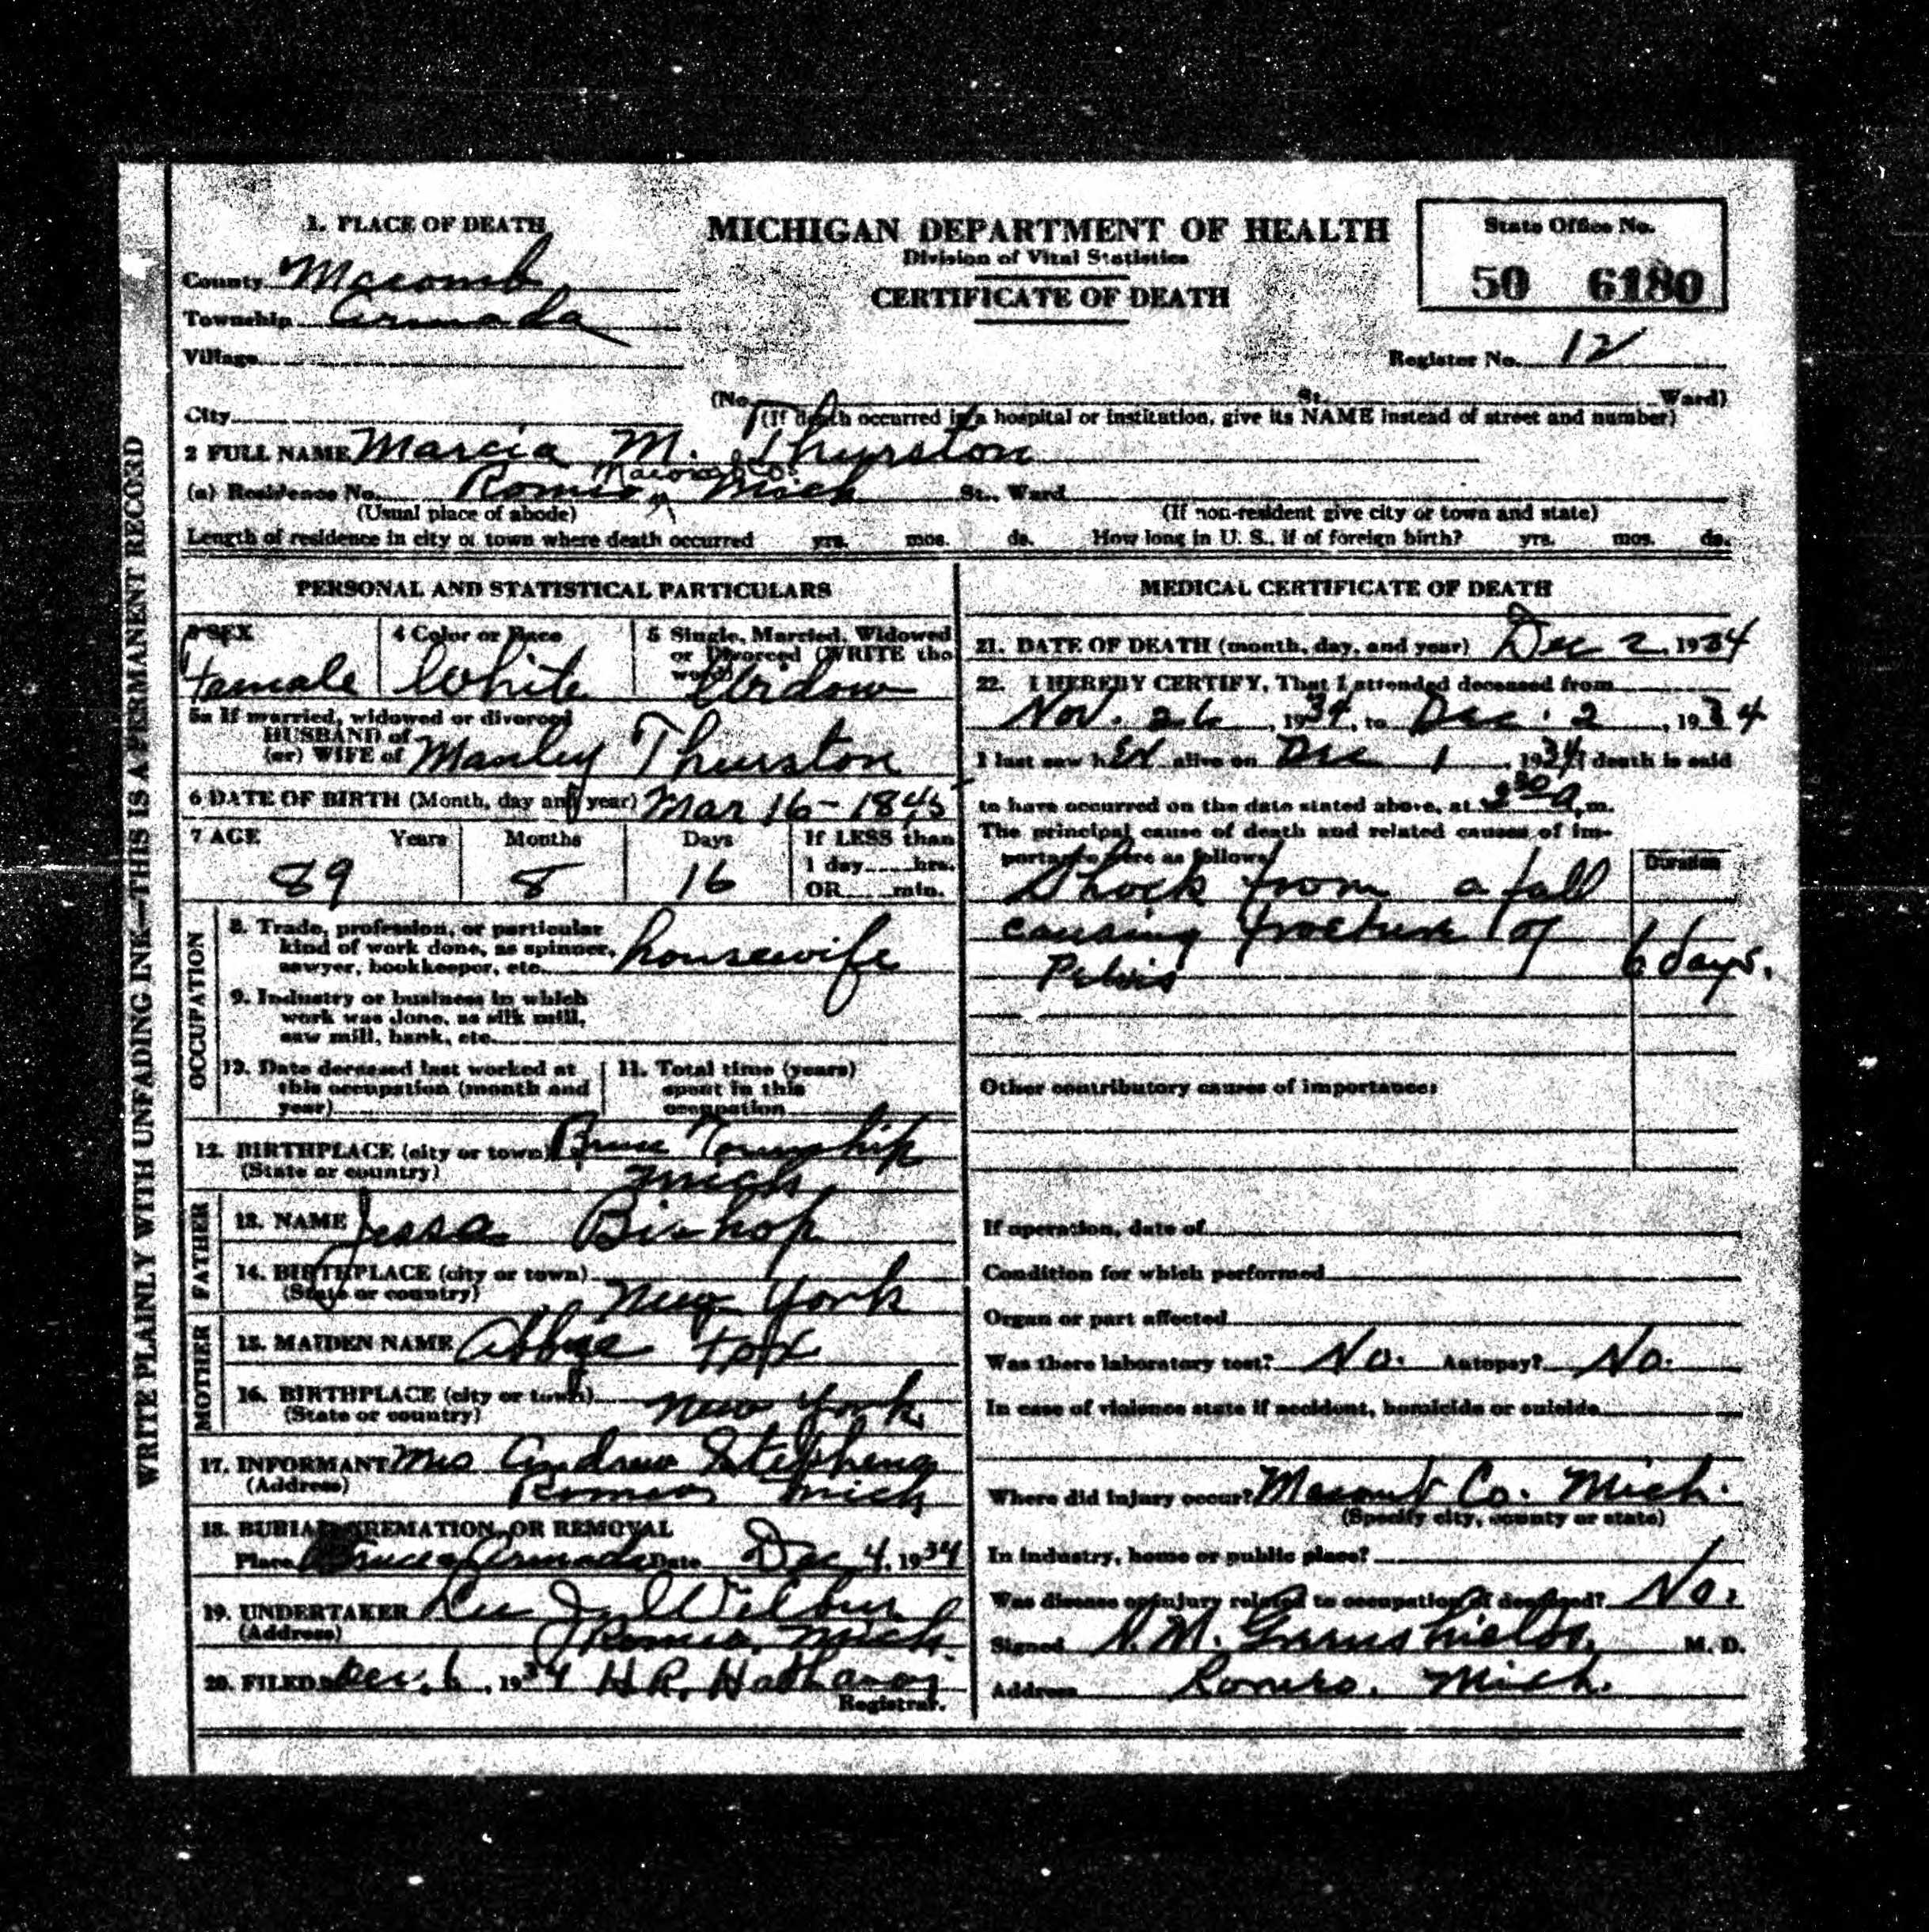 1. PLACE OF DEATH
County Macomb
Township Armada
Village
City
MICHIGAN DEPARTMENT OF HEALTH
Division of Vital Statistics
CERTIFICATE OF DEATH
State Office No.
50 6180
Register No. 12
(No. St. Ward)
(If death occurred in a hospital or institution, give its NAME instead of street and number)
2 FULL NAME Marcia M. Thurston
Macomb Co.
(a) Residence No. Romeo, Mich St., Ward
(Usual place of abode) (If non-resident give city or town and state)
Length of residence in city or town where death occurred yrs. mos. ds. How long in U. S., if of foreign birth? yrs. mos. ds.
WRITE PLAINLY WITH UNFADING INK—THIS IS A PERMANENT RECORD
PERSONAL AND STATISTICAL PARTICULARS
3 SEX
Female
4 Color or Race
White
5 Single, Married, Widowed
or Divorced (WRITE the
word) Widow
5a If married, widowed or divorced
HUSBAND of
(or) WIFE of Manley Thurston
6 DATE OF BIRTH (Month, day and year) Mar 16-1845
7 AGE Years Months Days
89 8 16
If LESS than
1 day hrs.
OR min.
OCCUPATION
8. Trade, profession, or particular
kind of work done, as spinner,
sawyer, bookkeeper, etc. housewife
9. Industry or business in which
work was done, as silk mill,
saw mill, bank, etc.
10. Date deceased last worked at
this occupation (month and
year)
11. Total time (years)
spent in this
occupation
12. BIRTHPLACE (city or town) Bruce Township
(State or country) Mich
FATHER
13. NAME Jessa Bishop
14. BIRTHPLACE (city or town)
(State or country) New York
MOTHER
15. MAIDEN NAME Abbye Fox
16. BIRTHPLACE (city or town)
(State or country) New York
17. INFORMANT Mrs Andrew Stephens
(Address) Romeo Mich
18. BURIAL, CREMATION, OR REMOVAL
Place Bruce Armada Date Dec 4, 1934
19. UNDERTAKER Lee J. Wilbur
(Address) Romeo, Mich
20. FILED Dec. 6, 1934 H R. Hathaway
Registrar.
MEDICAL CERTIFICATE OF DEATH
21. DATE OF DEATH (month, day, and year) Dec 2, 1934
22. I HEREBY CERTIFY, That I attended deceased from
Nov. 26, 1934, to Dec. 2, 1934
I last saw h er alive on Dec 1, 1934; death is said
to have occurred on the date stated above, at A.m.
The principal cause of death and related causes of im-
portance here as follows:
Duration
Shock from a fall
causing fracture of
Pelvis 6 days.
Other contributory causes of importance:
If operation, date of
Condition for which performed
Organ or part affected
Was there laboratory test? No. Autopsy? No.
In case of violence state if accident, homicide or suicide
Where did injury occur? Macomb Co. Mich.
(Specify city, county or state)
In industry, home or public place?
Was disease or injury related to occupation of deceased? No.
Signed S. M. Greenshields, M. D.
Address Romeo. Mich.